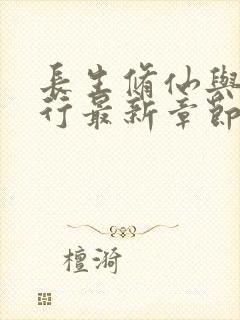 長生脩仙與
行最新章節
檀漪